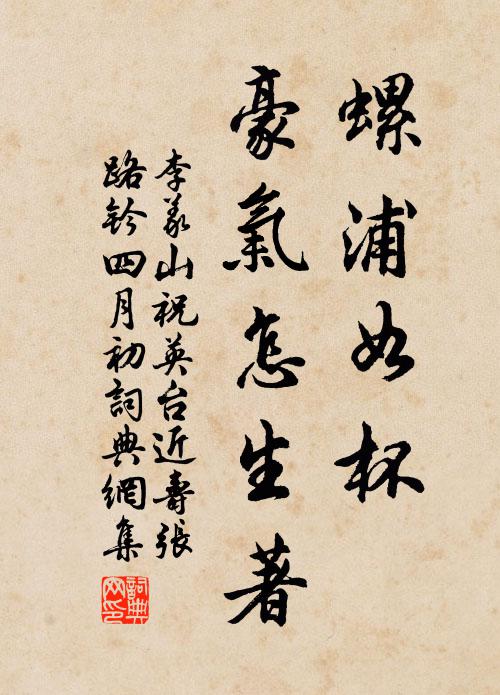 螺浦如杯
豪氣怎生著
李義山祝英台近壽張
路鈐四月初詞典網集
詞典網印